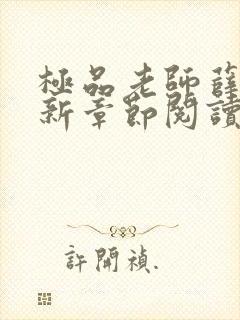 極品老師薛
新章節閱讀
許開禎.